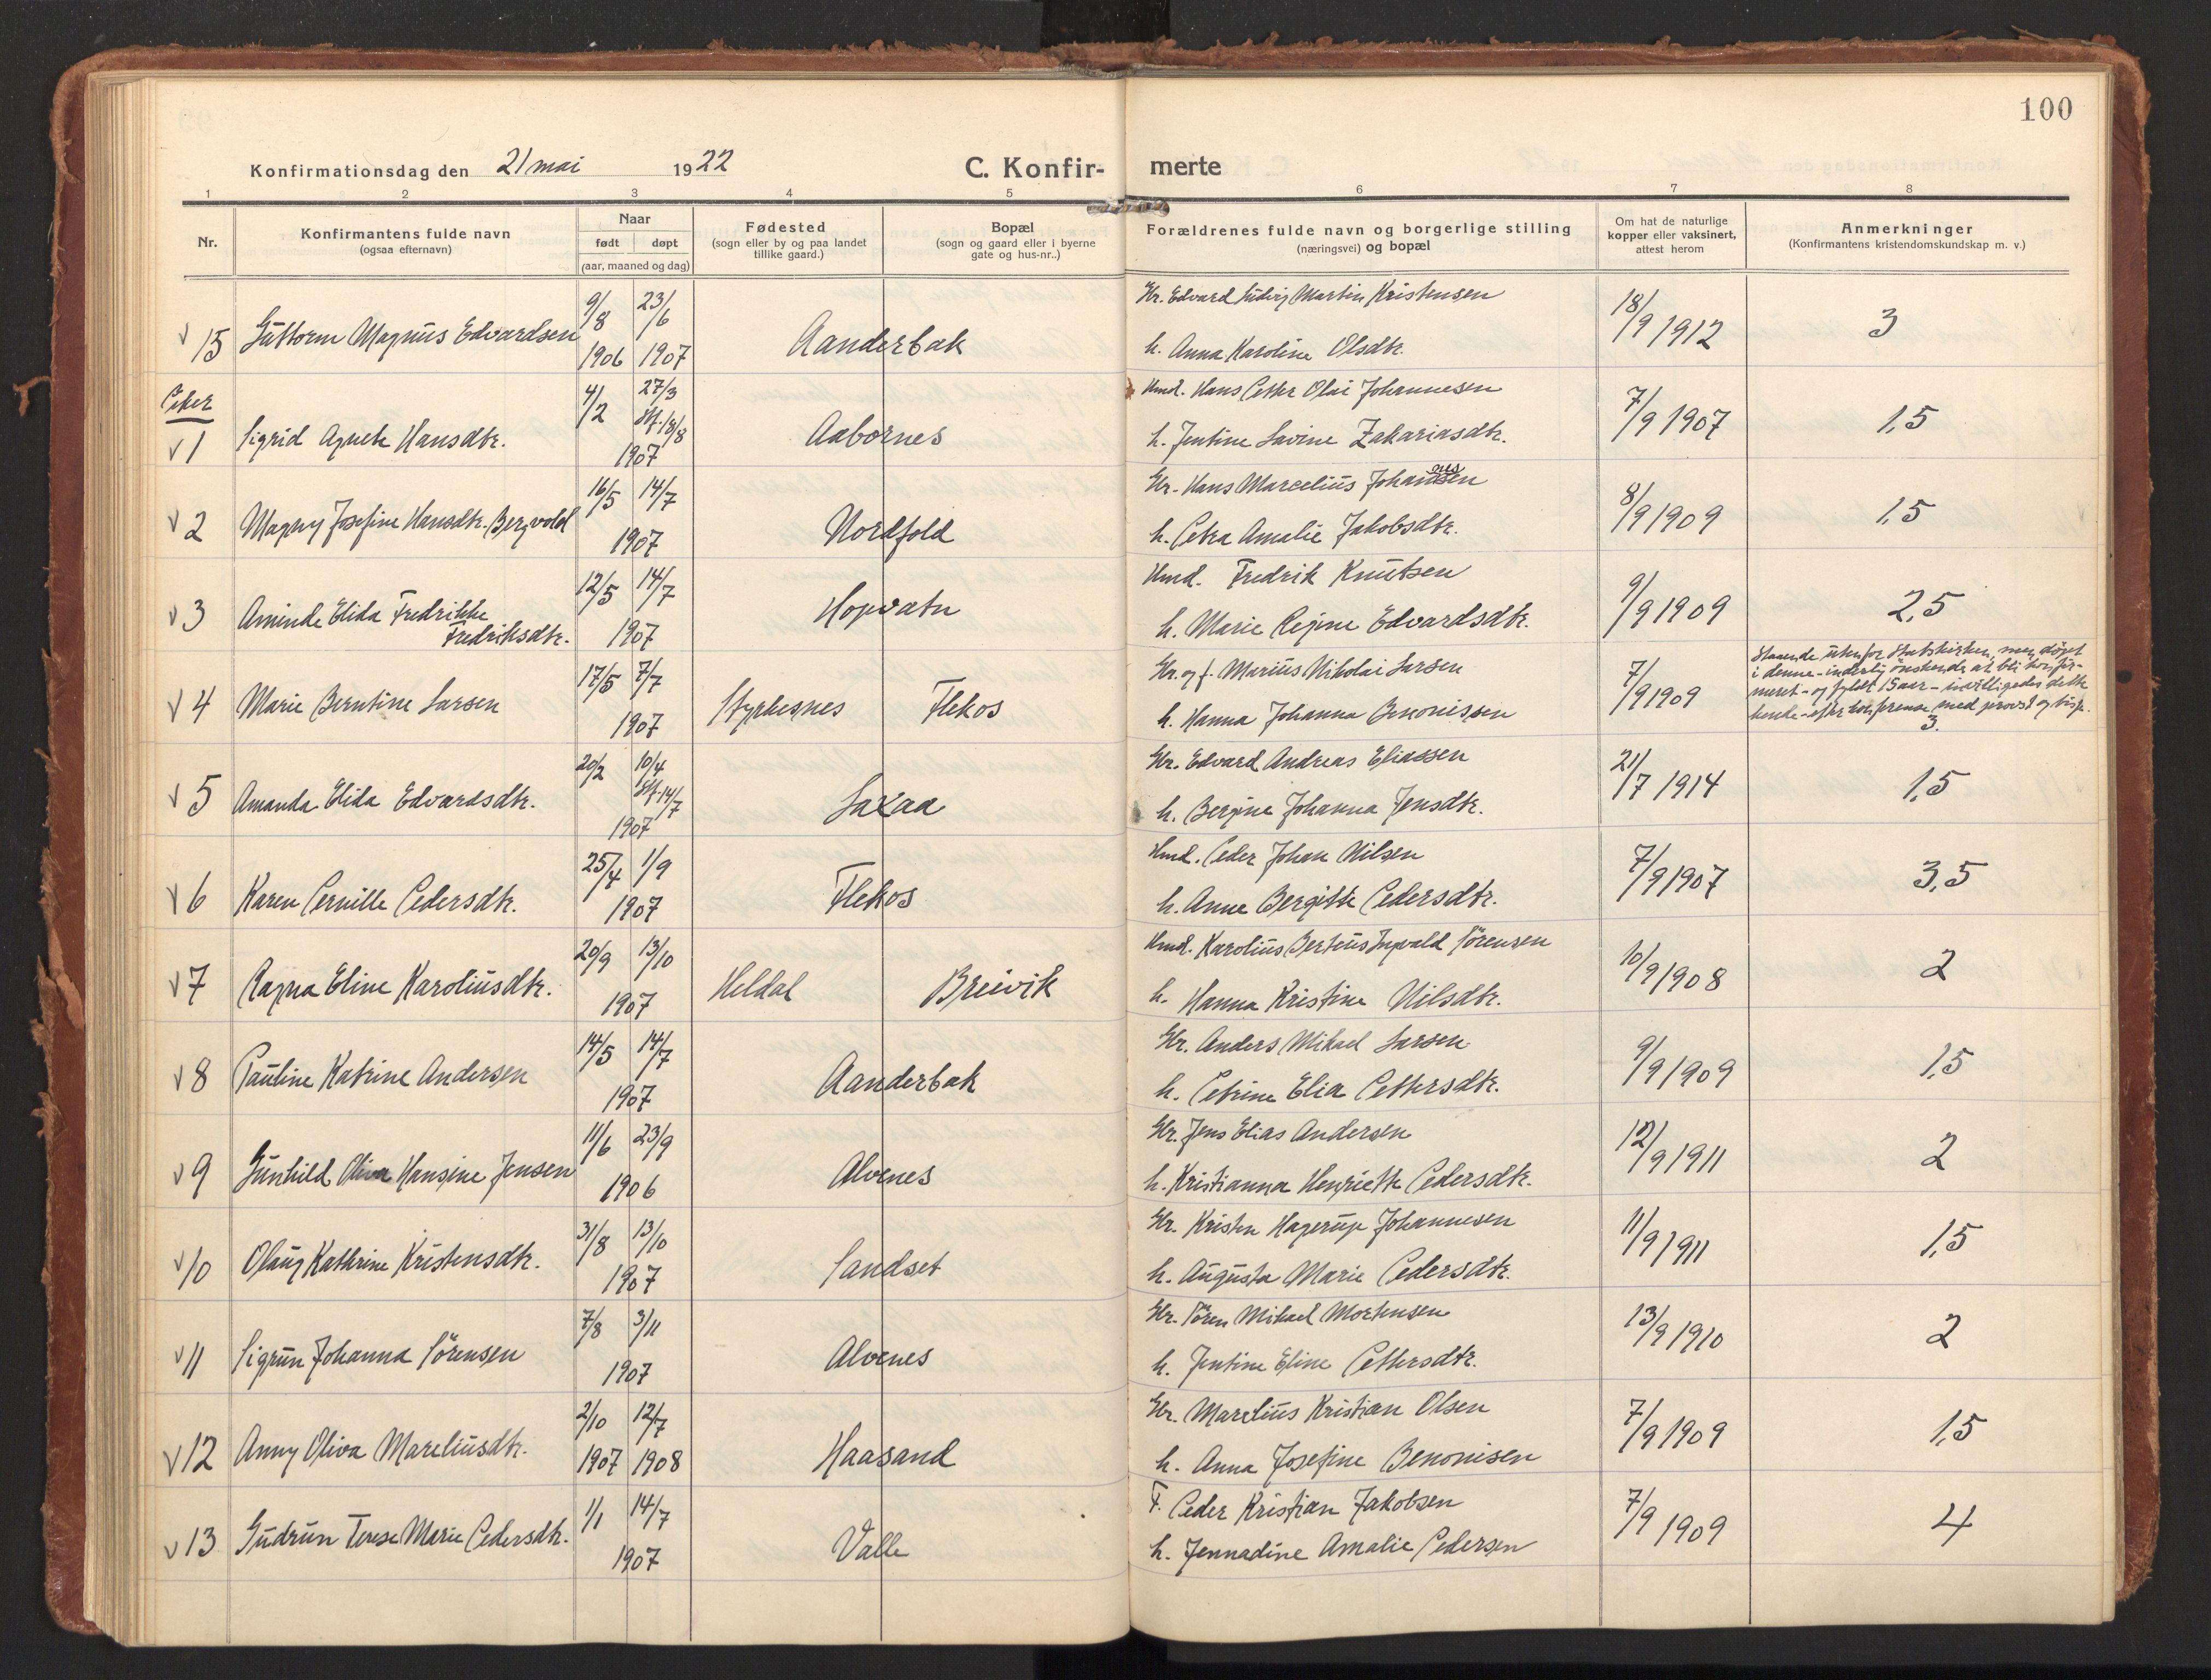 100
Konfirmationsdag den 21 mai 1922
C. Konfir-
merte
1 2 3 4 5 6 7 8
Nr.
Konfirmantens fulde navn
(ogsaa efternavn)
Naar
født døpt
(aar, maaned og dag)
Fødested
(sogn eller by og paa landet
tillike gaard.)
Bopæl
(sogn og gaard eller i byerne
gate og hus-nr..)
Forældrenes fulde navn og borgerlige stilling
(næringsvei) og bopæl
Om hat de naturlige
kopper eller vaksinert,
attest herom
Anmerkninger
(Konfirmantens kristendomskundskap m. v.)
v 15 Guttorm Magnus Edvardsen 9/8 1906 23/6 1907 Aanderbak
Gr. Edvard Ludvig Martin Kristensen
h. Anna Karoline Olsdtr.
18/9 1912 3
Piker
v 1 Sigrid Agnete Hansdtr. 4/2 27/3 Stf. 18/8 1907 Aabornes
Hmd. Hans Petter Olai Johannesen
h. Jentine Lavine Zakariasdtr.
7/9 1907 1,5
v 2 Magny Josefine Hansdtr. Bergvold 16/5 14/7 1907 Nordfold
Gr. Hans Marcelius Johansen
h. Petra Amalie Jakobsdtr.
8/9 1909 1,5
v 3 Aminde Elida Fredrikke
Fredriksdtr. 12/5 14/7 1907 Hopvatn
Hmd. Fredrik Knutsen
h. Marie Regine Edvardsdtr.
9/9 1909 2,5
v 4 Marie Berntine Larsen 17/5 7/7 1907 Styrkesnes Flekos
Gr. og f. Marius Nikolai Larsen
h. Hanna Johanna Benonissen
7/9 1909
Staaende utenfor Statskirken, men døpt
i denne - inderlig ønskende at bli konfir-
meret - og fyldt 15 aar - invilligedes dette
hende - efter konferense med provst og bisp.
3.
v 5 Amanda Elida Edvardsdtr. 20/2 10/4 Stf. 14/7 1907 Laxaa
Gr. Edvard Andreas Eliassen
h. Bergine Johanna Jensdtr.
21/7 1914 1,5
v 6 Karen Pernille Pedersdtr. 25/4 1/9 1907 Flekos
Hmd. Peder Johan Nilsen
h. Anne Bergitte Pedersdtr.
7/9 1907 3,5
v 7 Ragna Eline Karoliusdtr. 20/9 13/10 1907 Heldal Breivik
Hmd. Karolius Berteus Ingvald Sørensen
h. Hanna Kristine Nilsdtr.
10/9 1908 2
v 8 Pauline Katrine Andersen 14/5 14/7 1907 Aanderbak
Gr. Anders Mikael Larsen
h. Petrine Elia Pettersdtr.
9/9 1909 1,5
v 9 Gunhild Oliva Hansine Jensen 11/6 23/9 1906 Alvenes
Gr. Jens Elias Andersen
h. Kristianna Henriette Pedersdtr.
12/9 1911 2
v 10 Olaug Kathrine Kristensdtr. 31/8 13/10 1907 Sandset
Gr. Kristen Hagerup Johannesen
h. Augusta Marie Pedersdtr.
11/9 1911 1,5
v 11 Sigrun Johanna Sørensen 7/8 3/11 1907 Alvenes
Gr. Søren Mikael Mortensen
h. Jentine Eline Pettersdtr.
13/9 1910 2
v 12 Anny Oliva Mareliusdtr. 2/10 1907 12/7 1908 Haasand
Gr. Marelius Kristian Olsen
h. Anna Josefine Benonisen
7/9 1909 1,5
v 13 Gudrun Terese Marie Pedersdtr. 1/1 14/7 1907 Valle
F. Peder Kristian Jakobsen
h. Jennadine Amalie Pedersen
7/9 1909 4